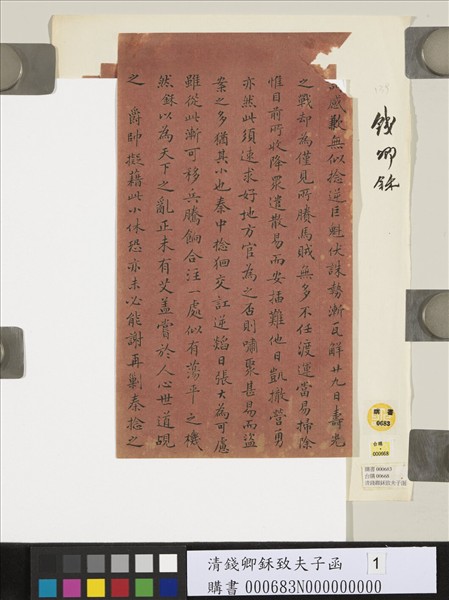 感歉無似捻逆巨魁伏誅勢漸瓦解廿九日壽光
之戰却為僅見所賸馬賊無多不任渡運當易掃除
惟目前所收降眾遣散易而安插難他日凱撤營勇
亦然此須速求好地方官為之否則嘯聚甚易而盜
案之多猶其小也秦中捻回交訌逆焰日張大為可慮
雖從此漸可移兵騰餉合注一處似有蕩平之機
然鉌以為天下之亂正未有艾蓋嘗於人心世道覘
之 爵帥擬藉此小休恐亦未必能謝再剿秦捻之
錢卿鉌
購書
0683
台購
000668
購書 000683
台購 00668
清錢卿鉌致夫子函
清錢卿鉌致夫子函
1
購書 000683N000000000